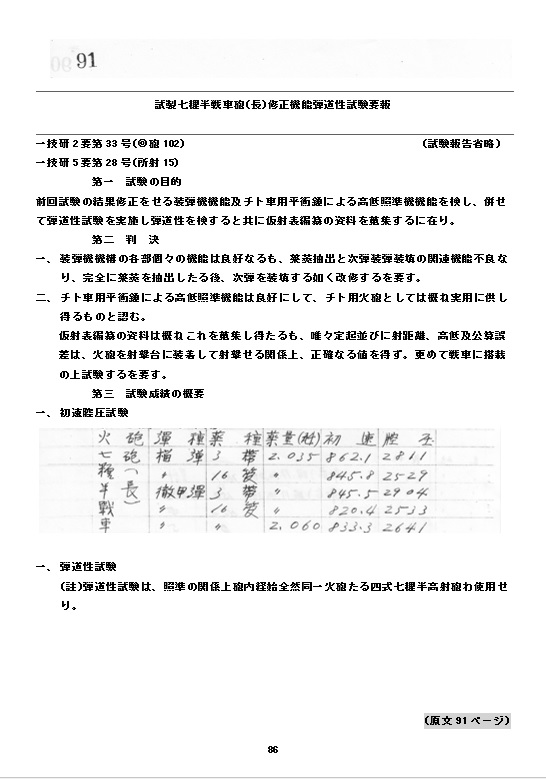 91
試製七糎半戦車砲(長)修正機能弾道性試験要報
一技研2要第33号(◎砲102) (試験報告省略)
一技研5要第28号(所射15)
第一 試験の目的
前回試験の結果修正をせる装弾機機能及チト車用平衡錘による高低照準機機能を検し、併せ
て弾道性試験を実施し弾道性を検すると共に仮射表編纂の資料を蒐集するに在り。
第二 判 決
一、装弾機機構の各部個々の機能は良好なるも、薬莢抽出と次弾装弾装填の関連機能不良な
り、完全に薬莢を抽出したる後、次弾を装填する如く改修するを要す。
二、チト車用平衡錘による高低照準機能は良好にして、チト用火砲としては概ね実用に供し
得るものと認む。
仮射表編纂の資料は概ねこれを蒐集し得たるも、唯々定起並びに射距離、高低及公算誤
差は、火砲を射撃台に装着して射撃せる関係上、正確なる値を得ず。更めて戦車に搭載
の上試験するを要す。
第三 試験成績の概要
一、初速腔圧試験
火砲 彈種 薬種 薬量(瓩) 初速 腔圧
七糎半戰車砲(長) 榴彈 3帶 2.035 862.1 2811
〃 16篏 〃 845.8 2529
徹甲彈 3帶 〃 845.5 2904
〃 16篏 〃 820.4 2533
〃 〃 2.060 833.3 2641
一、弾道性試験
(註)弾道性試験は、照準の関係上砲内経始全然同一火砲たる四式七糎半高射砲わ使用せ
り。
(原文91ページ)
86